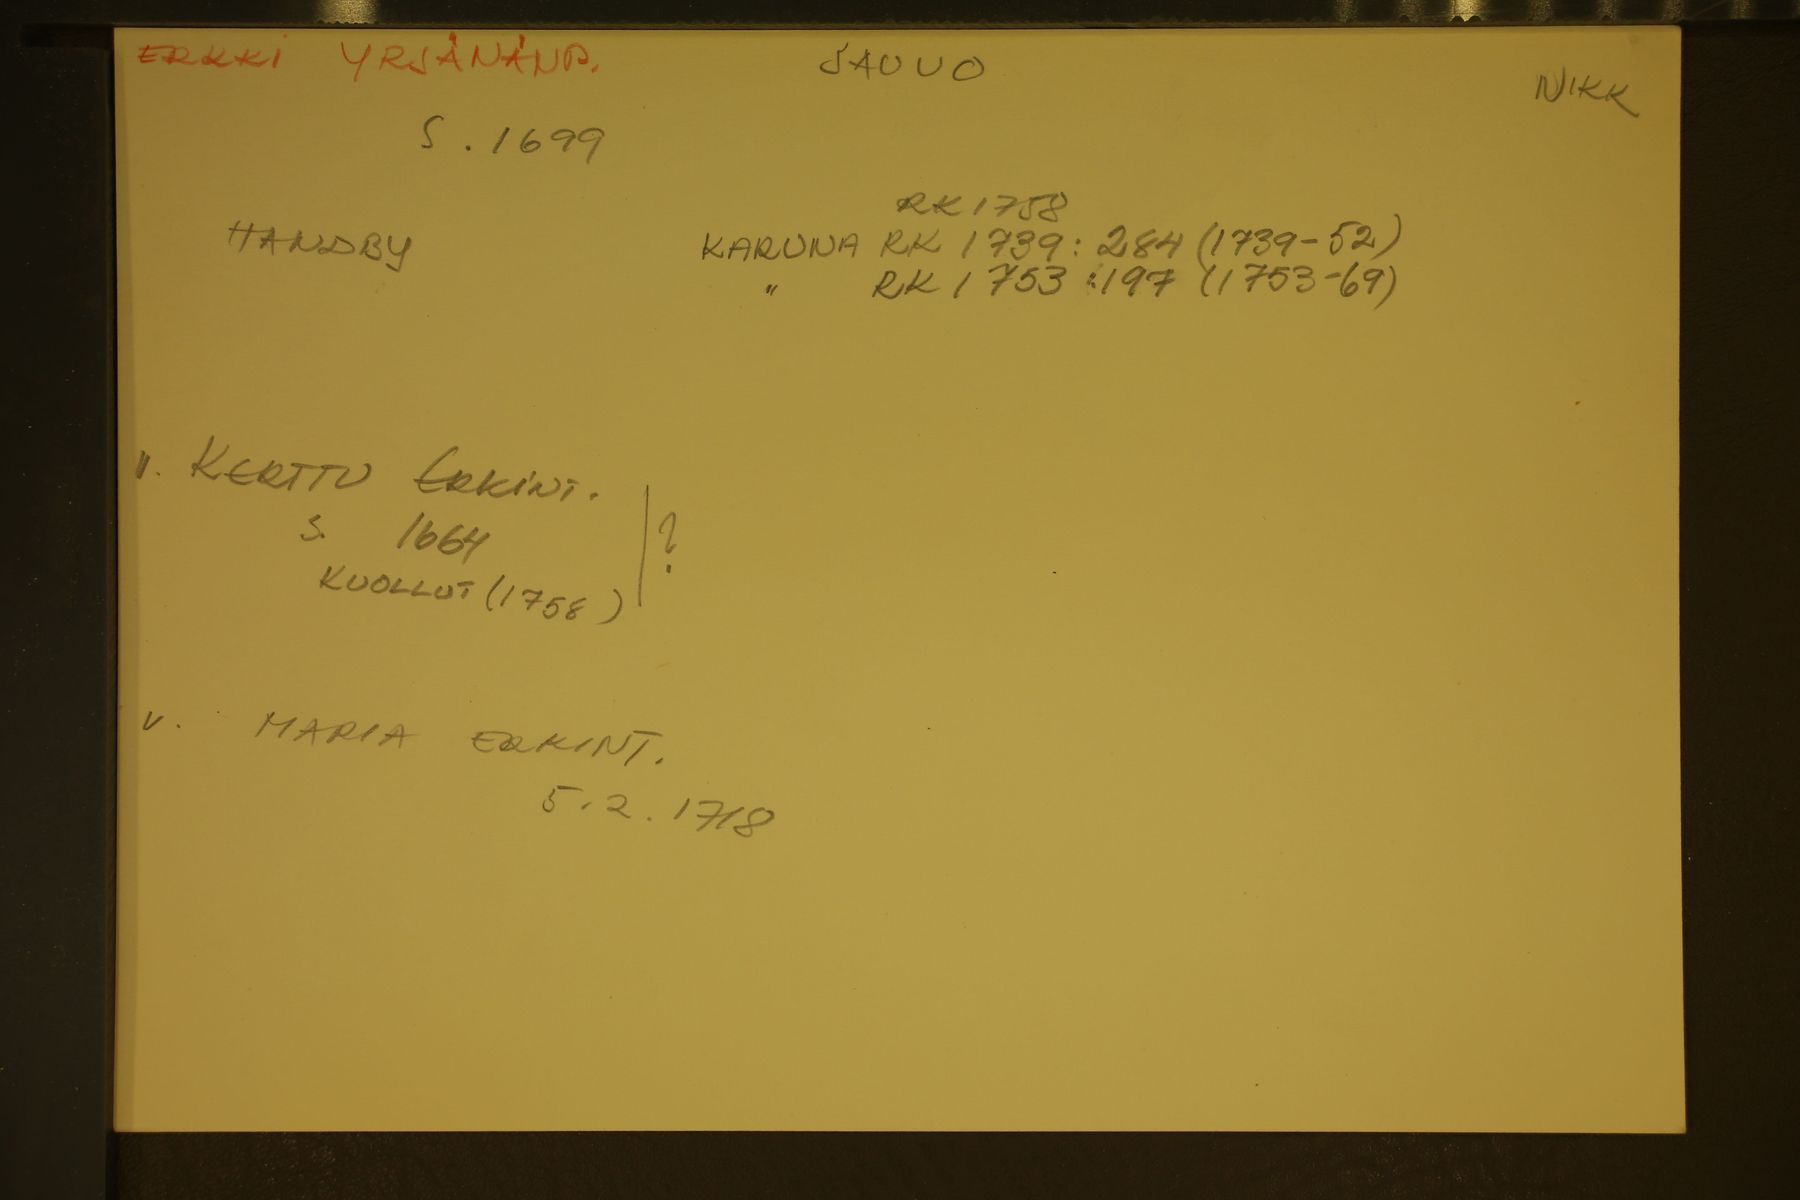 ERKKI YRJÄNÄNP. SAUVO NIKK
S. 1699
RK 1758
HANDBY KARUNA RK 1739: 284 (1739-52)
" RK 1753 :197 (1753-69)
II. KERTTU ERKINT. ?
S. 1664
KUOLLUT (1758)
V. MARIA ERKINT.
5.2.1718